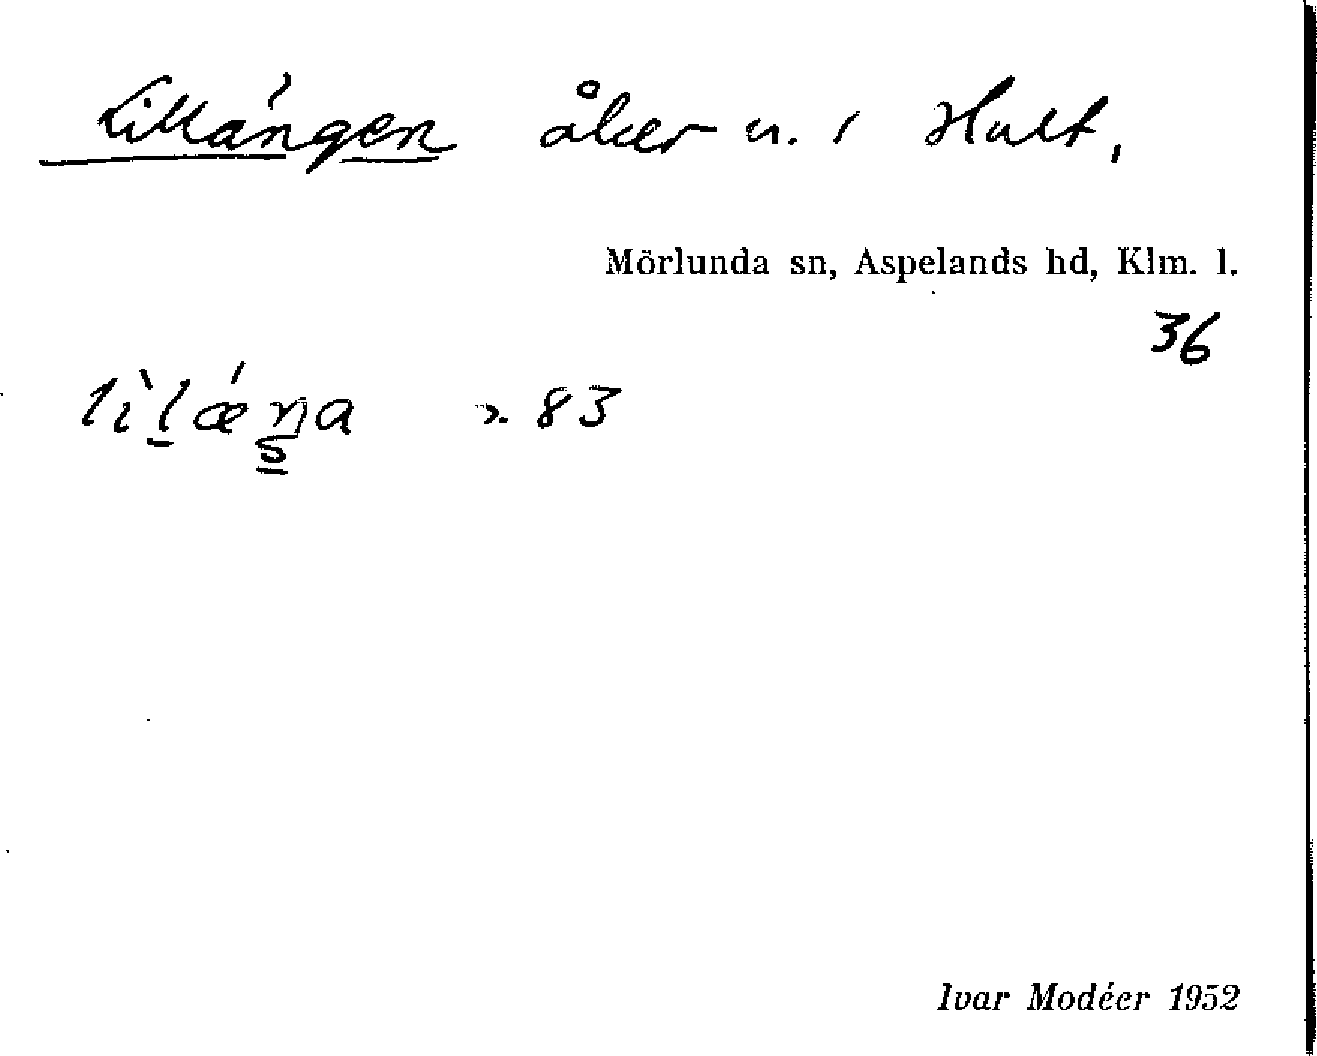 Lillängen åker n. i Hult,
Mörlunda sn, Aspelands hd, Klm. l.
36
lìlǽŋa 83
Ivar Modéer 1952